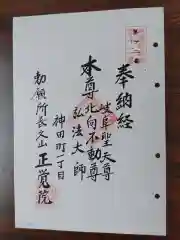 第一番
奉納経
岐阜聖天尊
本尊北向不動尊
弘法大師
神田町一丁目
勅願所長久山正覚院